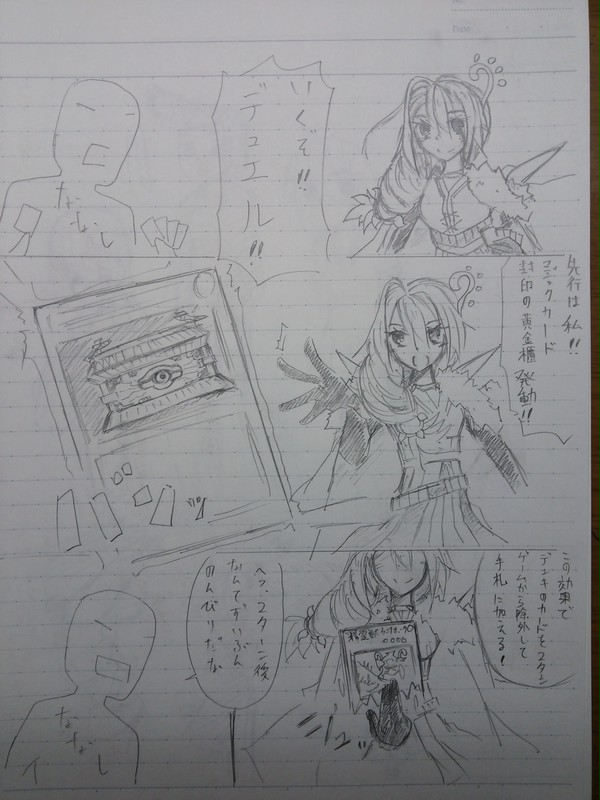 いくぞ!!
デュエル!!
ななし
先行は私!!
マジックカード
封印の黄金櫃 発動!!
ドドドド
この効果で
デッキのカードを2ターン
ゲームから除外して
手札に加える!
へっ、2ターン後
なんてずいぶん
のんびりだな
ななし